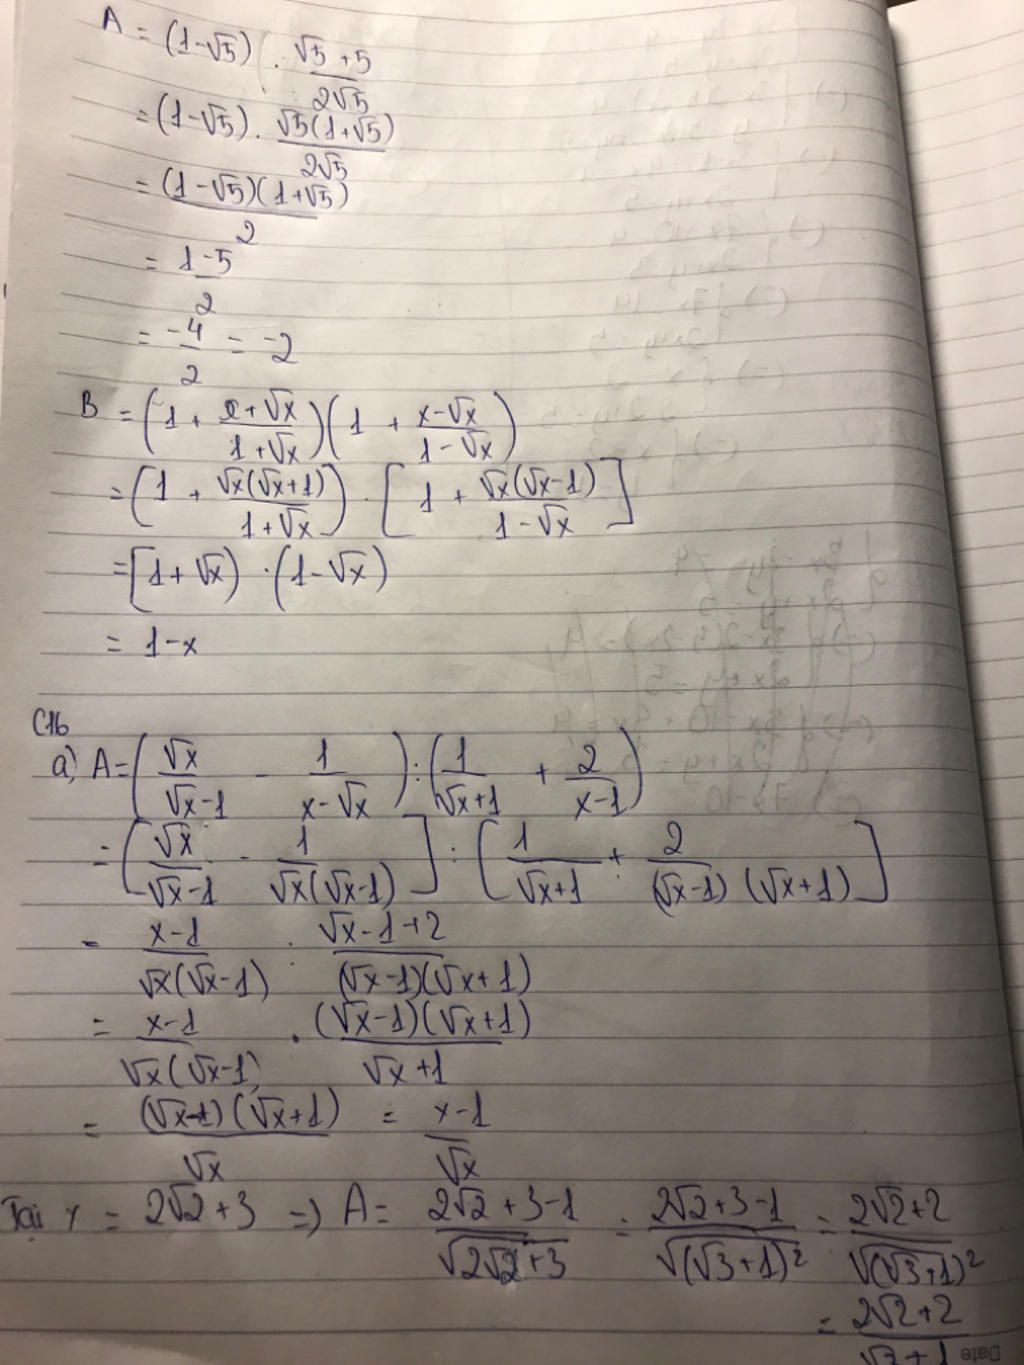 A = (1-√5) . (√5 + 5)/(2√5)
= (1-√5) . (√5(1+√5))/(2√5)
= ((1-√5)(1+√5))/2
= (1-5)/2
= (-4)/2 = -2
B = (1 + (x+√x)/(1+√x)) (1 + (x-√x)/(1-√x))
= (1 + (√x(√x+1))/(1+√x)) . [1 + (√x(√x-1))/(1-√x)]
= [1+√x) . (1-√x)
= 1-x
C1b
a) A = (√x/(√x-1) - 1/(x-√x)) : (1/(√x+1) + 2/(x-1))
= [√x/(√x-1) - 1/(√x(√x-1))] : [1/(√x+1) + 2/((√x-1)(√x+1))]
= (x-1)/(√x(√x-1)) : (√x-1+2)/((√x-1)(√x+1))
= (x-1)/(√x(√x-1)) . ((√x-1)(√x+1))/(√x+1)
= ((√x-1)(√x+1))/√x = (x-1)/√x
Tại x = 2√2+3 => A = (2√2+3-1)/√(2√2+3) = (2√2+3-1)/√((√3+1)²) = (2√2+2)/√((√3+1)²)
= (2√2+2)/(√3+1)
Date